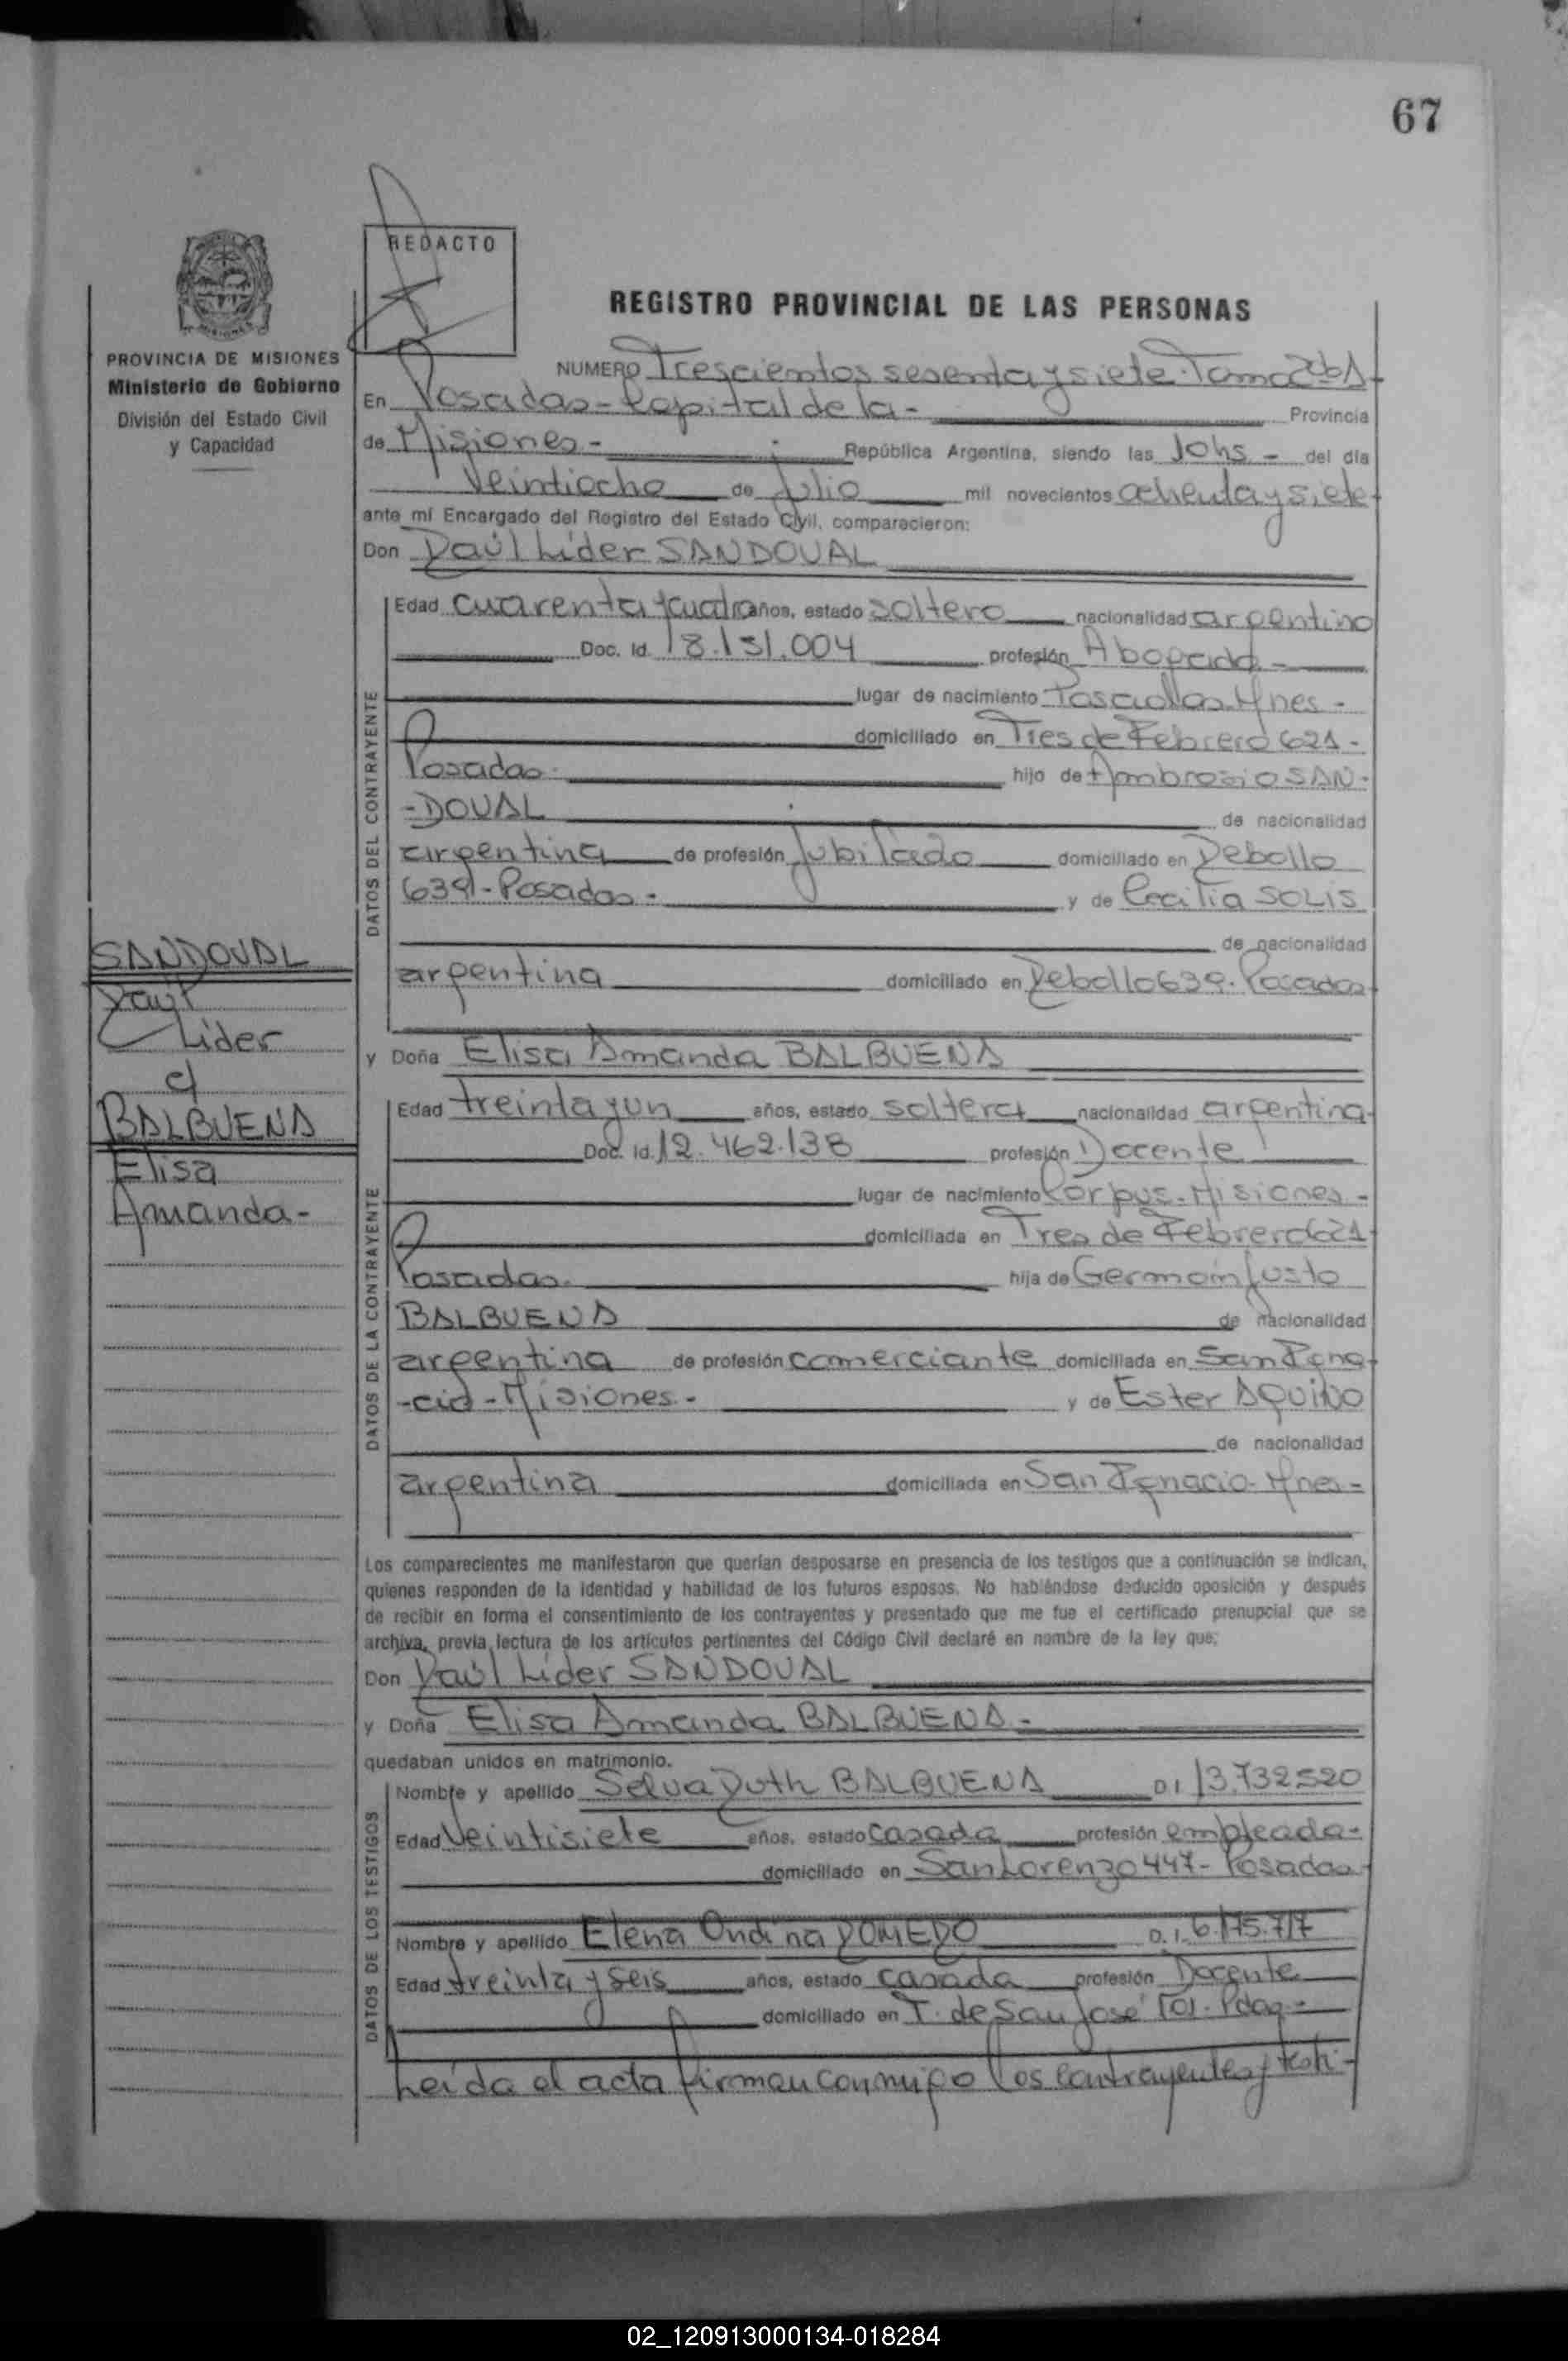 67
REDACTO
REGISTRO PROVINCIAL DE LAS PERSONAS
PROVINCIA DE MISIONES
Ministerio de Gobierno
División del Estado Civil
y Capacidad
NUMERO Trescientos sesenta y siete. Tomo
En Posadas - Capital de la - Provincia
de Misiones - República Argentina, siendo las 10hs - del día
Veintiocho de Julio mil novecientos ochenta y siete
ante mí Encargado del Registro del Estado Civil, comparecieron:
Don Raúl Lider SANDOVAL
DATOS DEL CONTRAYENTE
Edad cuarenta y cuatro años, estado soltero nacionalidad argentino
Doc. Id. 8.151.004 profesión Abogado -
lugar de nacimiento Posadas Mnes -
domiciliado en Tres de Febrero 621 -
Posadas - hijo de Ambrosio SAN-
-DOVAL de nacionalidad
argentina de profesión Jubilado domiciliado en Rebollo
639 - Posadas - y de Cecilia SOLIS
de nacionalidad
argentina domiciliado en Rebollo 639 - Posadas
SANDOVAL
Raúl
Lider
c/
BALBUENA
Elisa
Amanda -
y Doña Elisa Amanda BALBUENA
DATOS DE LA CONTRAYENTE
Edad treinta y un años, estado soltera nacionalidad argentina
Doc. Id. 12.462.138 profesión Docente
lugar de nacimiento Corpus - Misiones -
domiciliada en Tres de Febrero 621
Posadas - hija de Germain Justo
BALBUENA de nacionalidad
argentina de profesión comerciante domiciliada en San Igna-
-cio - Misiones - y de Ester AQUINO
de nacionalidad
argentina domiciliada en San Ignacio - Mnes -
Los comparecientes me manifestaron que querían desposarse en presencia de los testigos que a continuación se indican,
quienes responden de la identidad y habilidad de los futuros esposos. No habiéndose deducido oposición y después
de recibir en forma el consentimiento de los contrayentes y presentado que me fue el certificado prenupcial que se
archiva, previa lectura de los artículos pertinentes del Código Civil declaré en nombre de la ley que:
Don Raúl Lider SANDOVAL
y Doña Elisa Amanda BALBUENA -
quedaban unidos en matrimonio.
DATOS DE LOS TESTIGOS
Nombre y apellido Selva Ruth BALBUENA D.I. 13.732.520
Edad Veintisiete años, estado casada profesión empleada -
domiciliado en San Lorenzo 447 - Posadas
Nombre y apellido Elena Ondina ROMERO D.I. 6.175.717
Edad treinta y seis años, estado casada profesión Docente
domiciliado en T. de San José 101 - Pdas -
Leída el acta firman conmigo los contrayentes y testi-
02_120913000134-018284